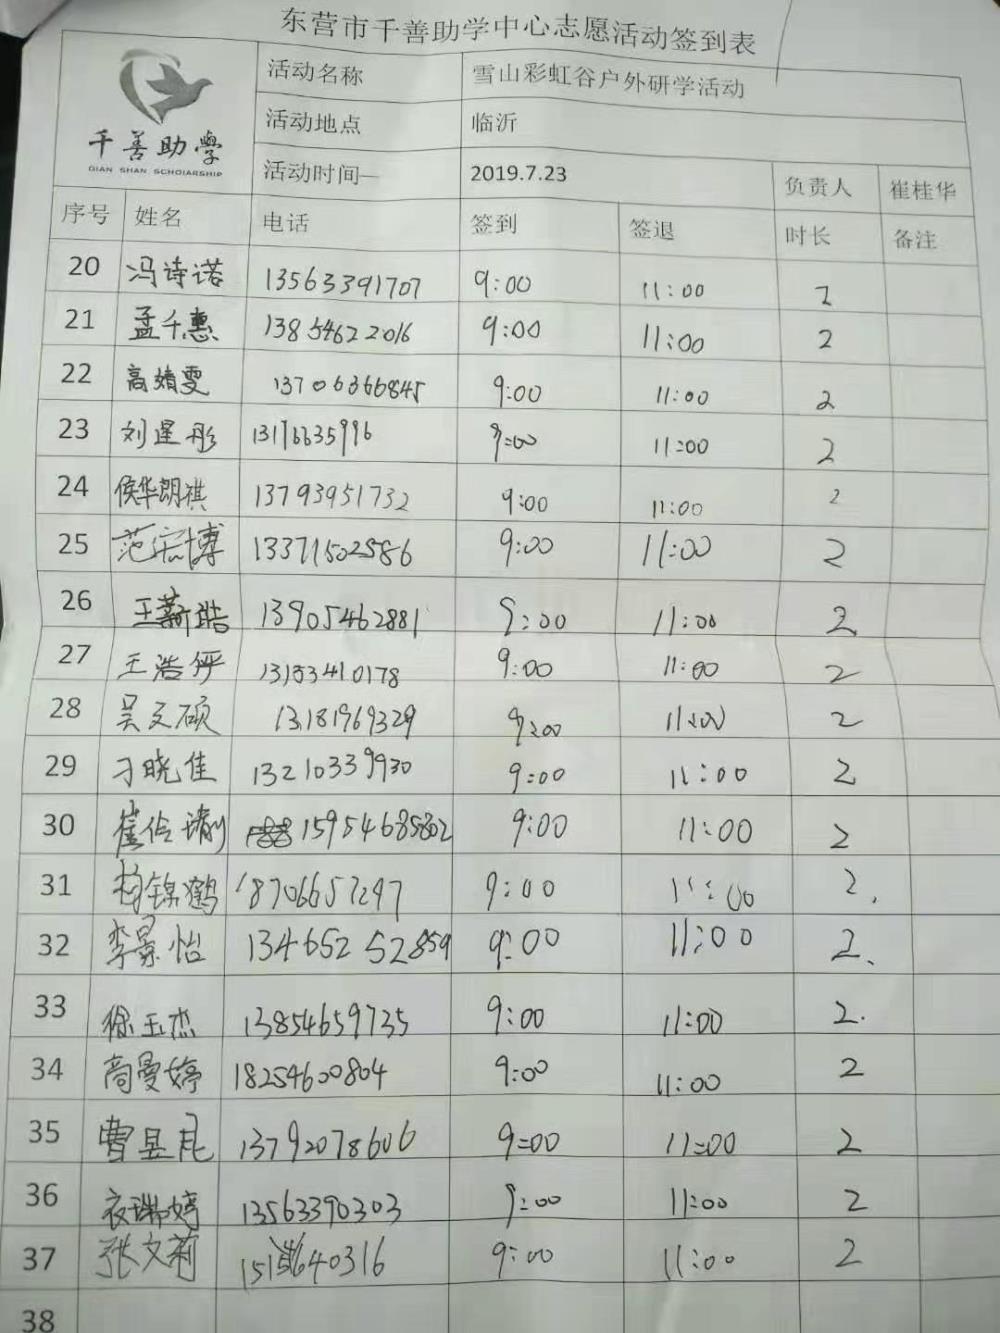 东营市千善助学中心志愿活动签到表
千善助學
QIAN SHAN SCHOLARSHIP
活动名称 雪山彩虹谷户外研学活动
活动地点 临沂
活动时间 2019.7.23 负责人 崔桂华
序号 姓名 电话 签到 签退 时长 备注
20 冯诗诺 13563391707 9:00 11:00 2
21 孟千惠 13854622016 9:00 11:00 2
22 高婧雯 13706366845 9:00 11:00 2
23 刘星彤 13176635996 9:00 11:00 2
24 侯华朗祺 13793951732 9:00 11:00 2
25 范宏博 13371502586 9:00 11:00 2
26 王薪皓 13905462881 9:00 11:00 2
27 王浩 13153410178 9:00 11:00 2
28 吴文硕 13181969329 9:00 11:00 2
29 刁晓佳 13210339930 9:00 11:00 2
30 崔伶瑜 15954685802 9:00 11:00 2
31 杨锦鹤 18706657297 9:00 11:00 2.
32 李景怡 13465252859 9:00 11:00 2.
33 徐玉杰 13854659735 9:00 11:00 2.
34 高曼婷 18254600804 9:00 11:00 2
35 曹昱 13792078606 9:00 11:00 2
36 衣瑞婷 13563390303 9:00 11:00 2
37 张文莉 9:00 11:00 2
38